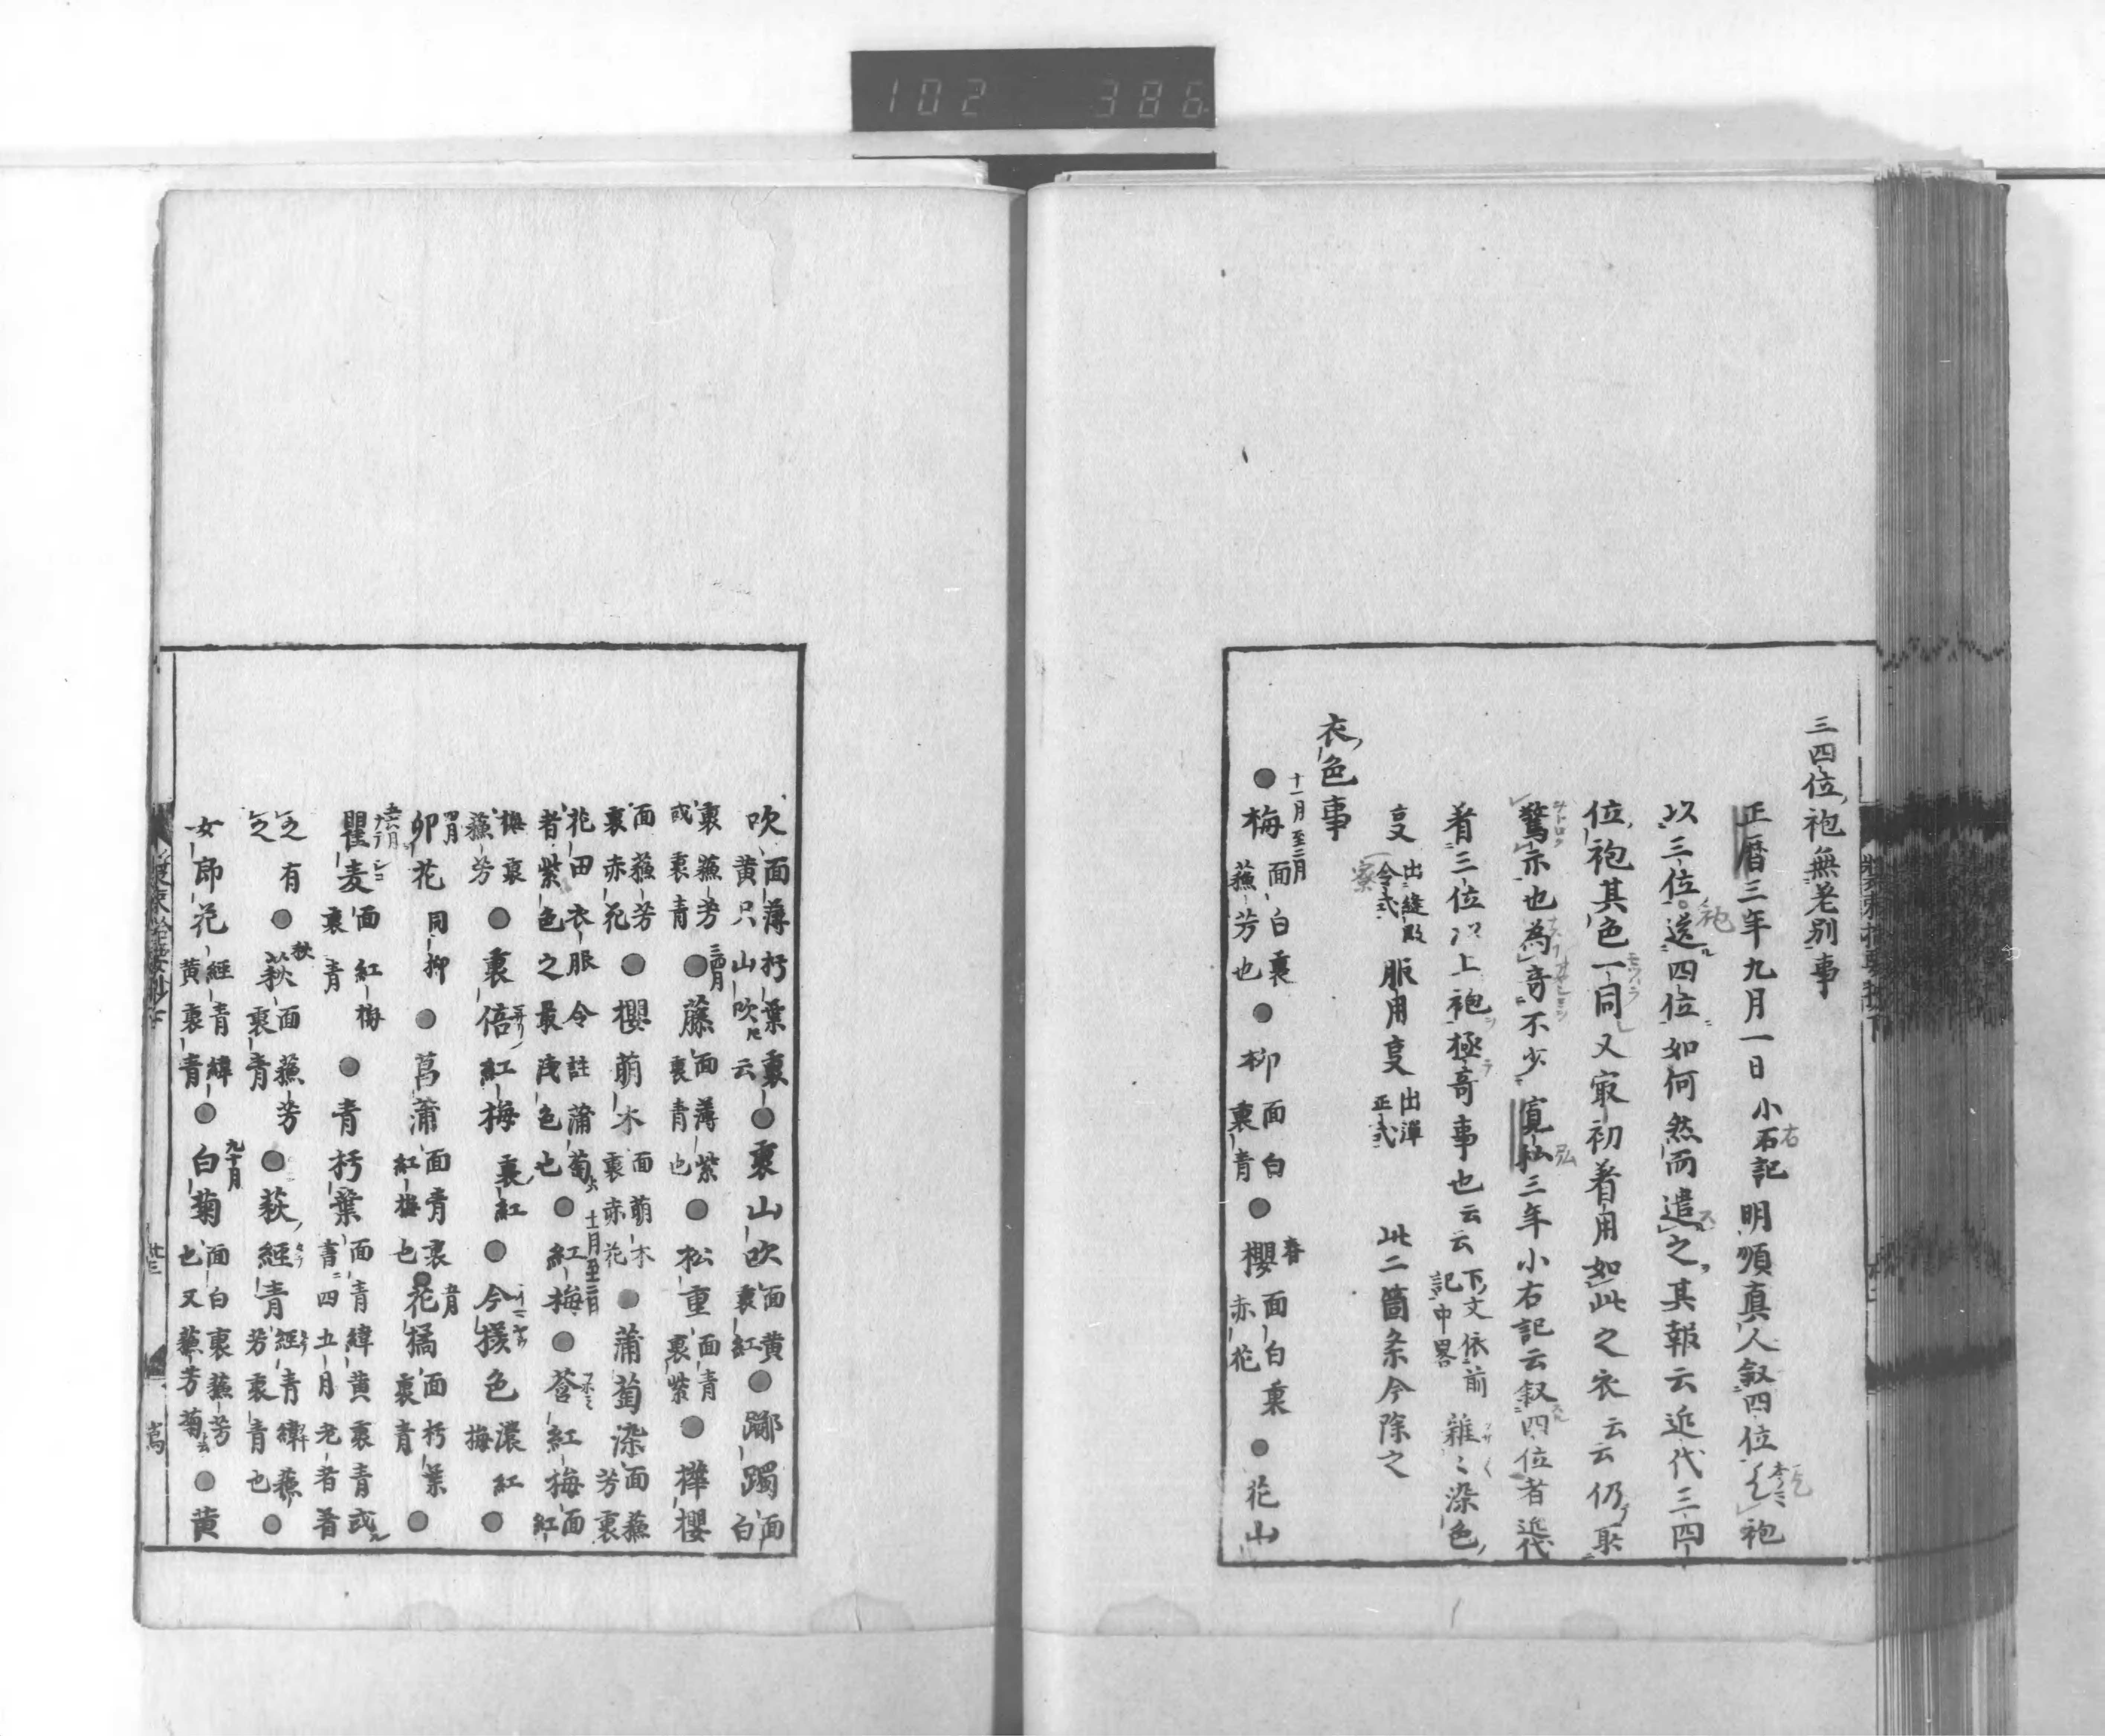 102 386
三四位袍無差別事
正暦三年九月一日小右記明順真人叙四位乞袍
以三位袍送四位如何然而遣之其報云近代三四
位袍其色一同又最初着用如此之衣云云仍取
驚示也為奇不少寛弘三年小右記云叙四位者近代
着三位以上袍極奇事也云云下文依前記中畧雑々染色
事出縫殿寮令式服用事出弾正式此二箇条今除之
衣色事
●梅十一月至二月面白裏蘓芳也●柳面白裏青●櫻春面白裏赤花●花山
吹面薄朽葉裏黄只山吹尼云●裏山吹面黄裏紅●躑躅面白
裏蘓芳或裏青●藤三四月面薄紫裏青也●松重面青裏紫●樺櫻
面蘓芳裏赤花●櫻萌木面萌木裏赤花●蒲萄染面蘓芳裏
花田衣服令註蒲萄者紫色之最浅色也●紅梅十一月至二月●莟紅梅面紅
梅裏蘓芳●裏倍紅梅裏紅●今様色濃紅梅●
卯花四月同柳●菖蒲面青裏紅梅也●花橘五月面朽葉裏青●
瞿麦面紅梅裏青●青朽葉面青緯黄裏青或書四五月老者着
之有之●萩秋面蘓芳裏青●萩経青経青緯蘓芳裏青也●
女郎花経青緯黄裏青●白菊九十月面白裏蘓芳也又蘓芳菊●黄